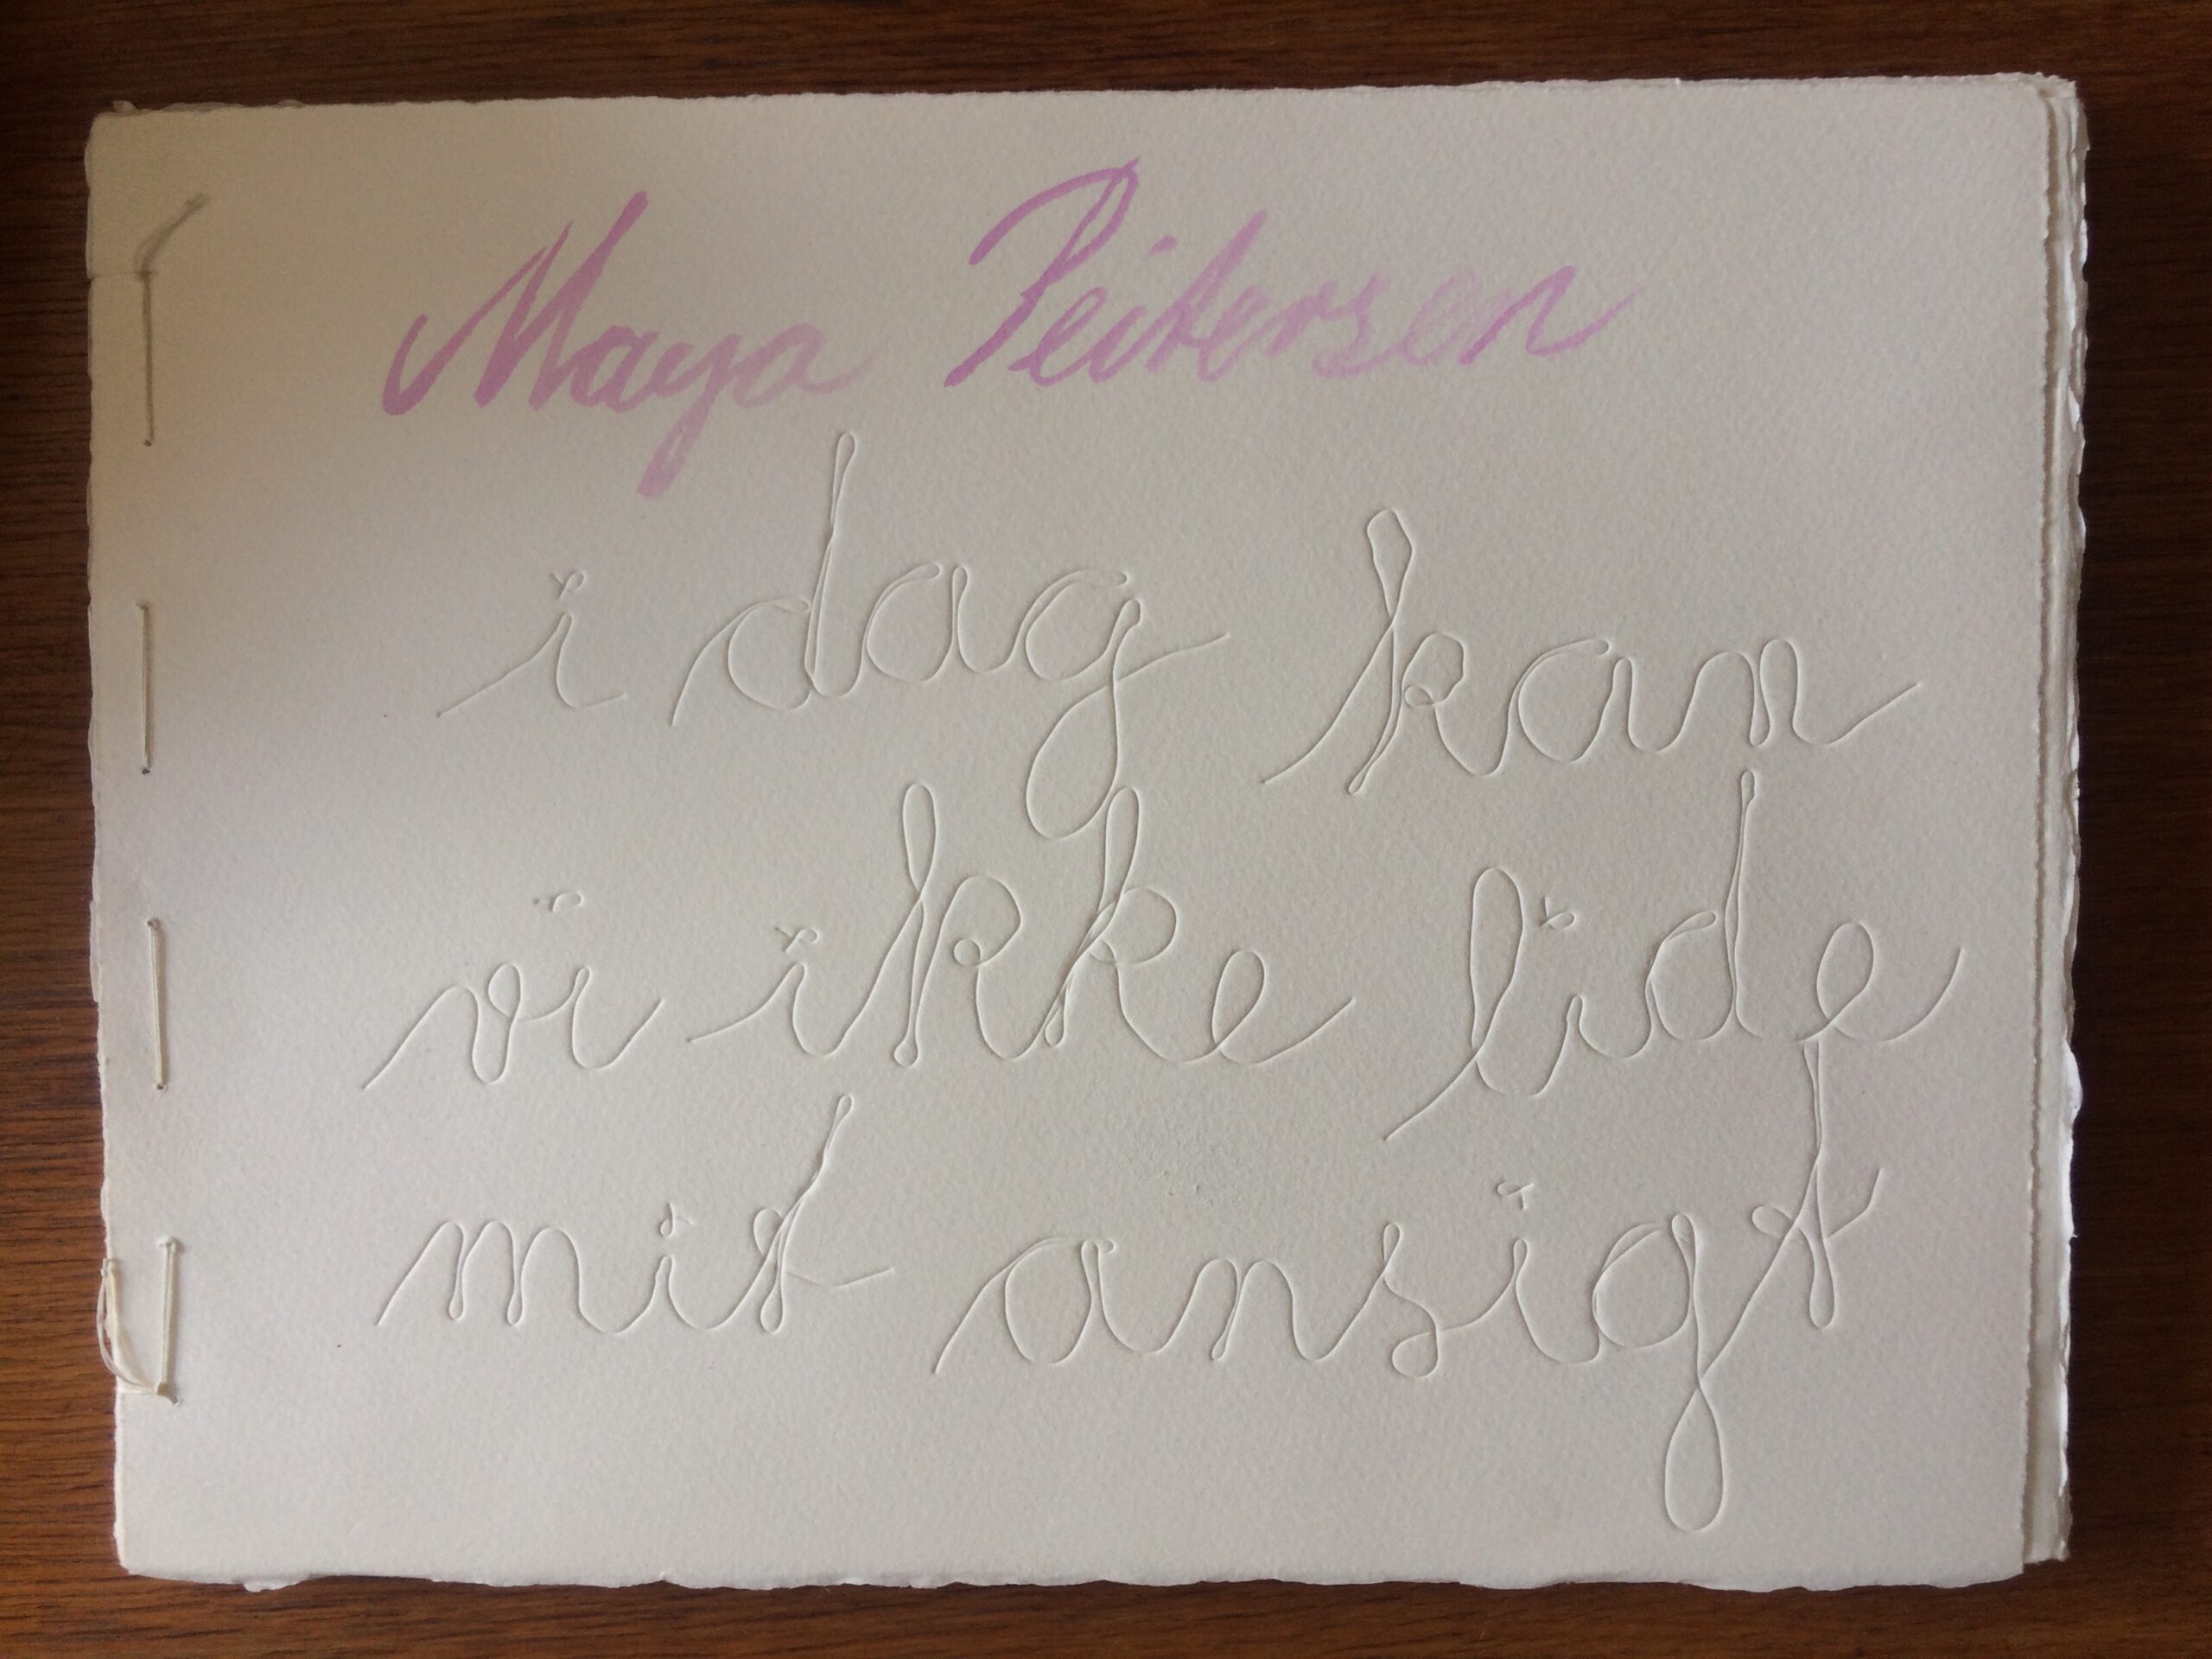 Maya Peitersen
i dag kan
vi ikke lide
mit ansigt